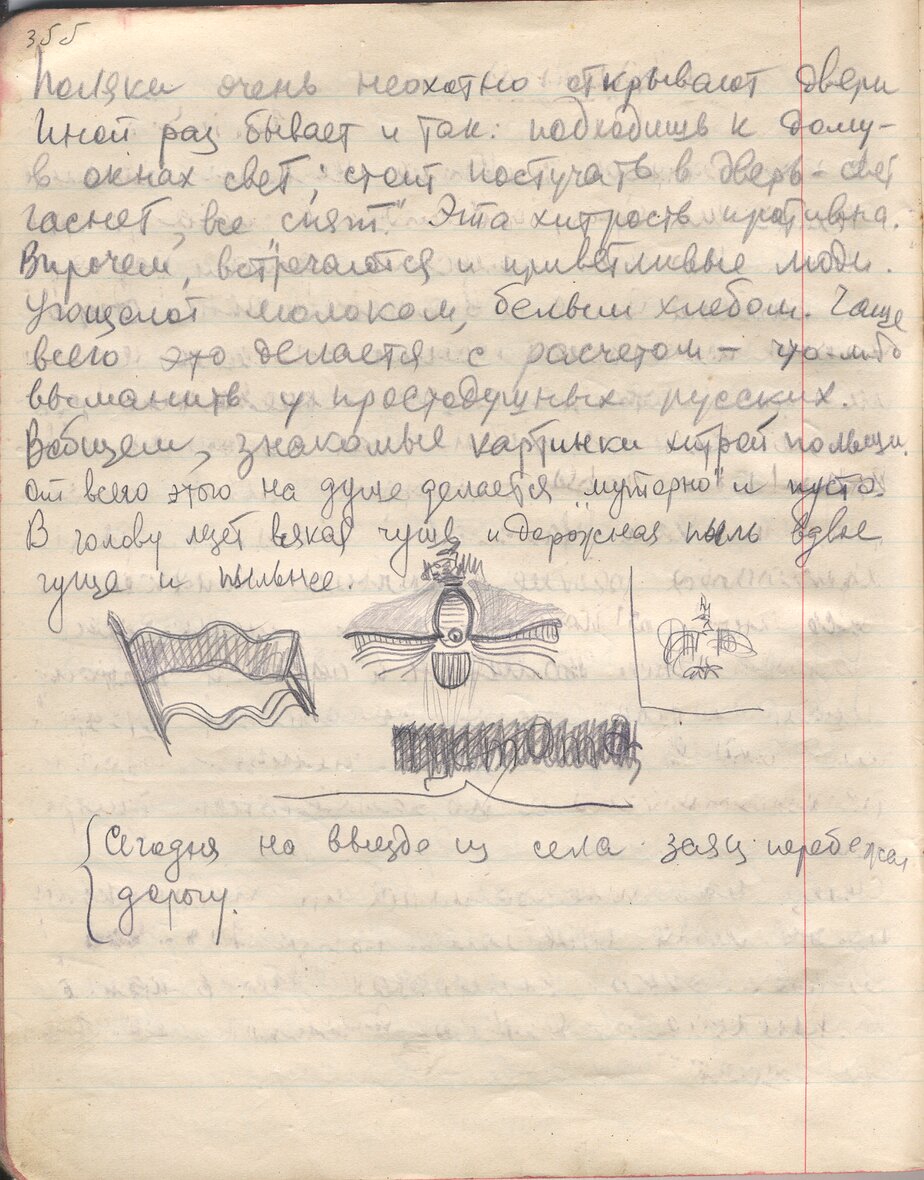 355
Поляки очень неохотно открывают двери
Иной раз бывает и так: подходишь к дому -
в окнах свет; стоит постучать в дверь - свет
гаснет, все „спят". Эта хитрость противна.
Впрочем, встречаются и приветливые люди.
Угощают молоком, белым хлебом. Чаще
всего это делается с расчетом - что либо
выманить у простодушных русских.
Вобщем, знакомые картинки хитрой польши.
От всего этого на душе делается „муторно" и пусто.
В голову лезет всякая чушь и дорожная пыль вдвое
гуще и пыльнее
Сегодня на выезде из села заяц перебежал
дорогу.